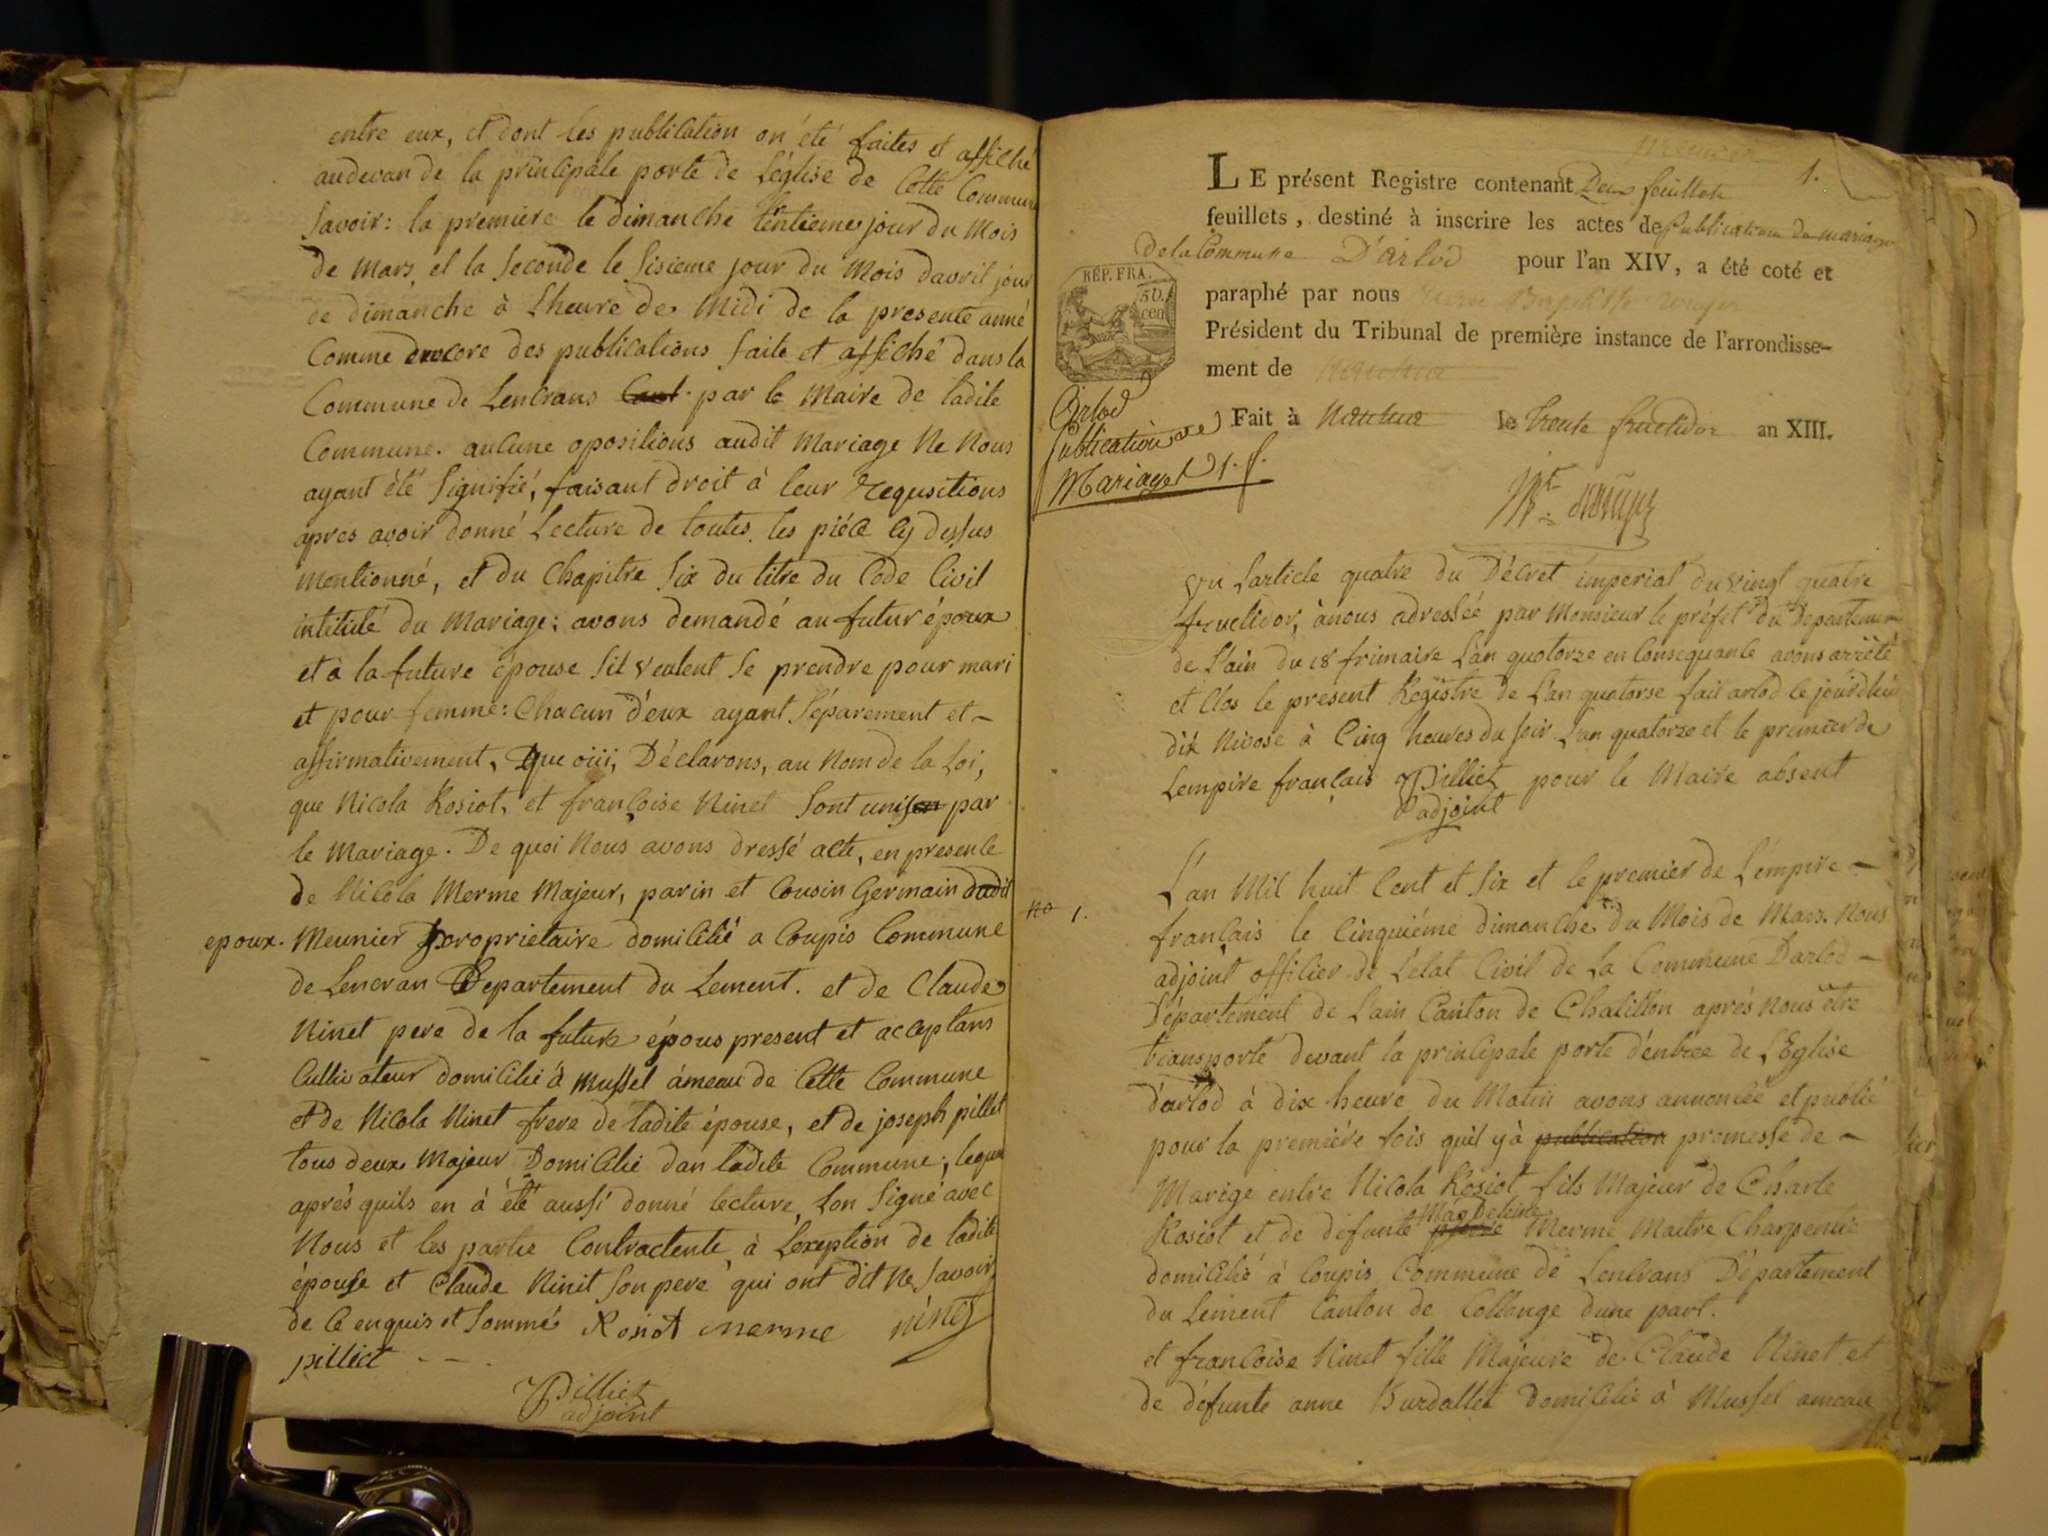 entre eux, et dont les publication on été faites et affiché
audevan de la principale porte de L'église de Cette Commune
Savoir: la premiere le dimanche trentieme jour du Mois
de Mars, et la Seconde le Sisieme jour du Mois davril jour
de dimanche à Lheure de Midi de la presente anné
Comme encore des publications faite et affiché dans la
Commune de Lencrans par le Maire de ladite
Commune. aucune opositions audit Mariage Ne Nous
ayant été Signifié, faisant droit à leur requsitions
apres avoir donné Lecture de toutes les piéce cy dessus
mentionné, et du Chapitre Six du titre du Code Civil
intitulé du Mariage: avons demandé au futur époux
et à la future épouse Sil veulent Se prendre pour mari
et pour femme: Chacun d'eux ayant Séparement et -
affirmativement, Que oüi, Déclarons, au Nom de la Loi,
que Nicola Rosiot, et françoise Ninet Sont unis par
le Mariage. De quoi Nous avons dressé acte, en presence
de Nicola Merme Majeur, parin et Cousin Germain dudit
epoux. Meunier proprietaire domicilié a Coupis Commune
de Lencran Departement du Lement. et de Claude
Ninet pere de la future épous present et acceptans
Cultivateur domicilié à Mussel ámeau de Cette Commune
et de Nicola Ninet frere de ladite épouse, et de joseph pillet
tous deux Majeur Domicilié dan ladite Commune; lequel
aprés quils en à été aussi donné lecture, Lon Signé avec
Nous et les partie Contractente à L'exeption de ladite
épouse et Claude Ninit Son pere qui ont dit Ne Savoir
de Ce enquis et Sommé Rosiot merme ninet
pilliet - - .
Pilliet
adjoint
1.
LE présent Registre contenant Deux feuillets
feuillets, destiné à inscrire les actes de Publication de mariage
de la Commune D'arlod pour l'an XIV, a été coté et
RÉP. FRA.
50. cen
paraphé par nous
Président du Tribunal de première instance de l'arrondisse-
ment de Nantua
Fait à Nantua le trente fructidor an XIII.
Arlod
Publication de
Mariages 1. f.
Vu Larticle quatre du Décret imperial du vingt quatre
fructidor, ànous adressée par Monsieur le préfet du Departement
de L'ain du 18 frimaire L'an quatorze en Consequante avons arrêté
et Clos le present Registre de L'an quatorse fait arlod le jourdhui
dix Nivose à Cinq heures du Soir L'an quatorze et le premier de
Lempire français Pilliet pour le Maire absent
l'adjoint
No 1.
L'an Mil huit Cent et Six et le premier de L'empire -
français le Cinquiéme dimanche du Mois de Mars. Nous
adjoint officier de L'état Civil de La Commune Darlod -
Département de Lain Canton de Chatillon aprés Nous être
transporté devant la principale porte d'entree de L'Eglise
d'arlod à dix heure du Matin avons annoncée et publié
pour la première fois quil y à publication promesse de -
Marige entre Nicola Rosiot fils Majeur de Charle
Rosiot et de défunte Magdeleine Merme Maitre Charpentie
domicilié à Coupis Commune de Lencrans Département
du Lement Canton de Collonge dune part.
et francoise Ninet fille Majeure de Claude Ninet et
de défunte anne Burdallet Domicilié à Mussel ameau